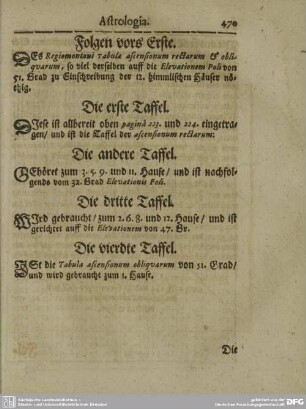 Astrologia. 470
Folgen vors Erste.
DEs Regiomontani Tabula ascensionum rectarum & obli-
qvarum, so viel derselben auff die Elevationem Poli von
51. Grad zu Einschreibung der 12. himmlischen Häuser nö-
thig.
Die erste Taffel.
DIese ist allbereit oben paginâ 223. und 224. eingetra-
gen/ und ist die Taffel der ascensionum rectarum:
Die andere Taffel.
GEhöret zum 3. 5. 9. und 11. Hause/ und ist nachfol-
gends vom 32. Grad Elevationis Poli.
Die dritte Taffel.
WIrd gebraucht/ zum 2. 6. 8. und 12. Hause/ und ist
gerichtet auff die Elevationem von 47. Gr.
Die vierdte Taffel.
ISt die Tabula ascensionum obliqvarum von 51. Grad/
und wird gebraucht zum 1. Hause.
Die